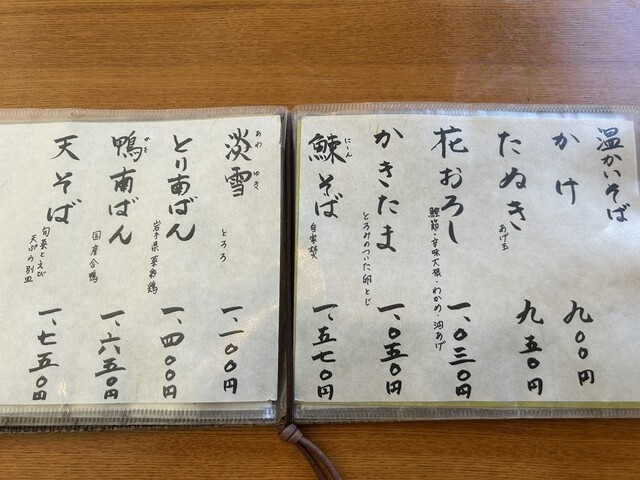 温かいそば
かけ
九〇〇円
たぬき
あげ玉
九五〇円
花おろし
鰹節・辛味大根・わかめ・油あげ
一、〇三〇円
かきたま
とろみのついた卵とじ
一、〇五〇円
鰊そば
にしん
自家製
一、五七〇円
淡雪
あわ ゆき
とろろ
一、一〇〇円
とり南ばん
岩手県菜彩鶏
一、四〇〇円
鴨南ばん
かも
国産合鴨
一、六五〇円
天そば
旬菜とえび
天ぷら別皿
一、七五〇円